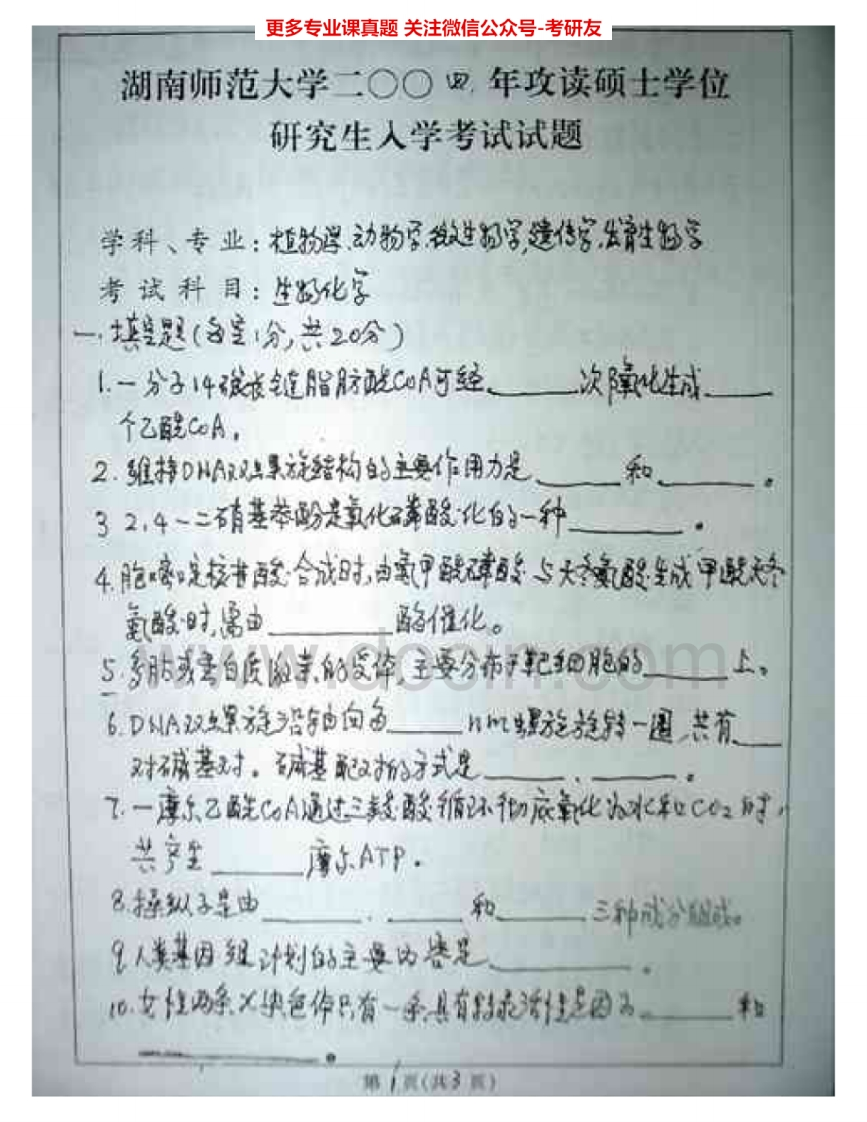 更多专业课真题 关注微信公众号-考研友
湖南师范大学二〇〇四年攻读硕士学位
研究生入学考试试题
学科、专业:植物学、动物学、微生物学,遗传学、发育生物学
考试科目:生物化学
一.填空题(每空1分,共20分)
1.一分子14碳长链脂肪酰CoA可经______次β氧化生成______
个乙酰CoA。
2.维持DNA双螺旋结构的主要作用力是______和______。
3 2,4-二硝基苯酚是氧化磷酸化的一种______。
4.胞嘧啶核苷酸合成时,由氨甲酰磷酸与天冬氨酸生成甲酰天冬
氨酸时,需由______酶催化。
www.docin.com
5.多肽或蛋白质激素的受体,主要分布于靶细胞的______上。
6.DNA双螺旋沿轴向每______nm螺旋旋转一圈,共有___
对碱基对。碱基配对的方式是______、______。
7.一摩尔乙酰CoA通过三羧酸循环彻底氧化为水和CO2时,
共产生______摩尔ATP。
8.操纵子是由______、______和______三种成分组成。
9.人类基因组计划的主要内容是______。
10.女性两条X染色体只有一条具有转录活性是因为______和
______。
第1页(共3页)